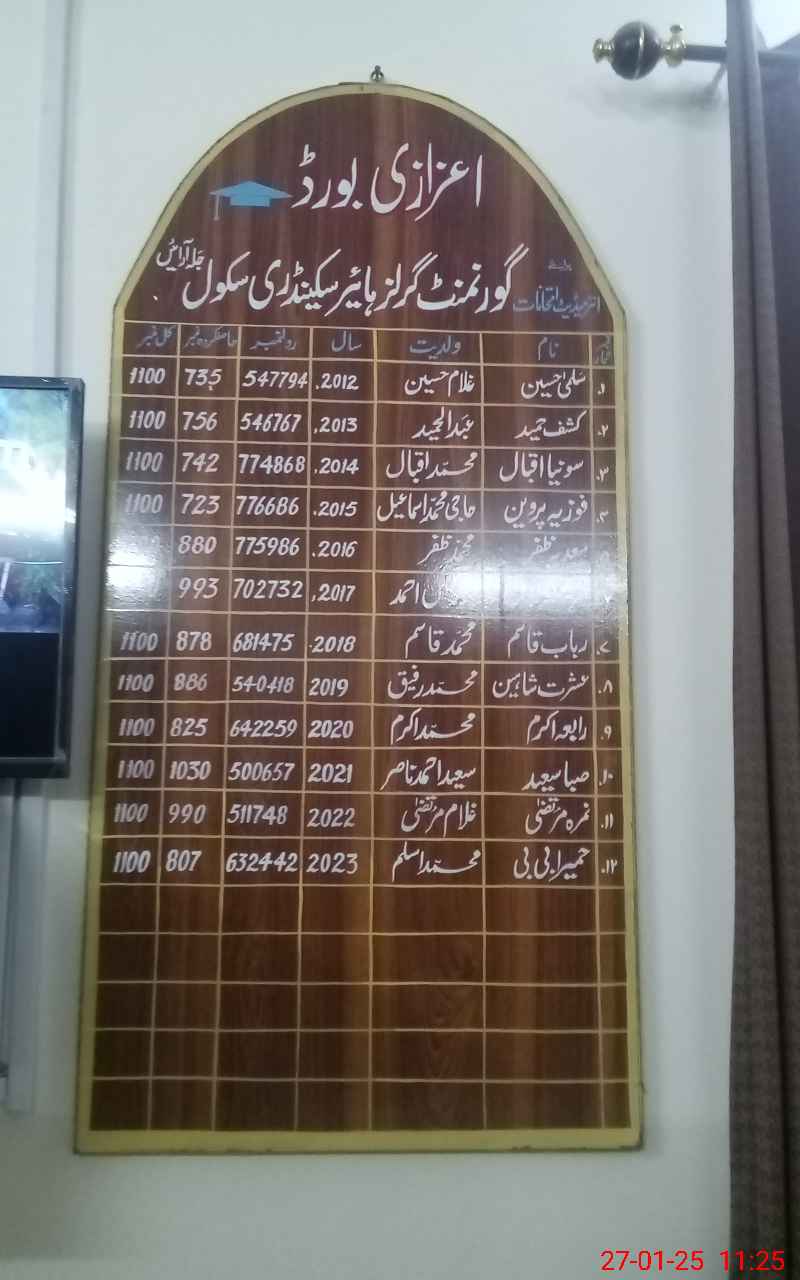 اعزازی بورڈ
گورنمنٹ گرلز ہائیر سیکنڈری سکول جلہ آرائیں
برائے
انٹرمیڈیٹ امتحانات
نمبر شمار نام ولدیت سال رولنمبر حاصلکردہ نمبر کل نمبر
۱. سلمیٰ حسین غلام حسین 2012. 547794 735 1100
۲. کشف حمید عبدالحمید 2013. 546767 756 1100
۳. سونیا اقبال محمد اقبال 2014. 774868 742 1100
۴. فوزیہ پروین حاجی محمد اسماعیل 2015. 776686 723 1100
ظفر محمد ظفر 2016. 775986 880
احمد 2017. 702732 993
۷. رباب قاسم محمد قاسم 2018. 681475 878 1100
۸. عشرت شاہین محمد رفیق 2019 540418 886 1100
۹. رابعہ اکرم محمد اکرم 2020 642259 825 1100
۱۰. صبا سعید سعید احمد ناصر 2021 500657 1030 1100
۱۱. نمرہ مرتضیٰ غلام مرتضیٰ 2022 511748 990 1100
۱۲. حمیرا بی بی محمد اسلم 2023 632442 807 1100
27-01-25 11:25